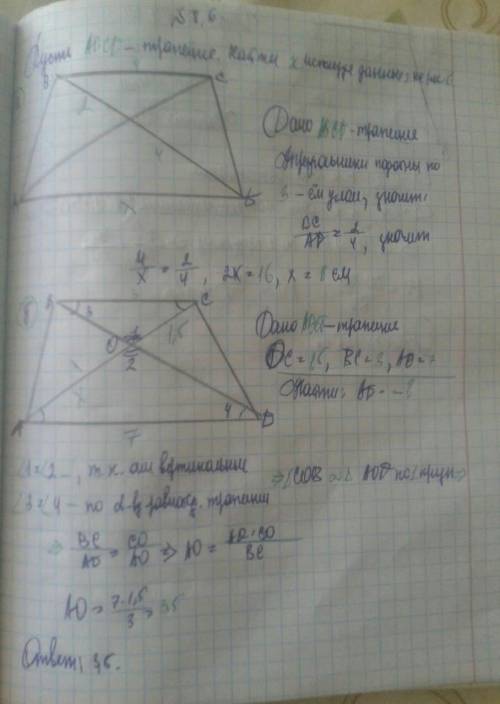 № 8,6.
Пусть ABCD - трапеция. Найти x используя данные на рис
B C
2
4
A D
x
Дано ABCD - трапеция
Треугольники подобны по
3 - ём углам, значит:
BC/AD = 2/4, значит
4/x = 2/4, 2x = 16, x = 8 см
B C
3
O 1
2
1,5
x
A 4 D
7
Дано ABCD - трапеция
OC = 1,5, BC = 3, AD = 7
Найти: AO - ?
∠1 = ∠2 -, т.к. они вертикальные
∠3 = ∠4 - по трапеции
⇒ △COB ~ △AOD по I призн ⇒
⇒ BC/AD = CO/AO ⇒ AO = AD·CO/BC
AO = 7·1,5/3 = 3,5
Ответ: 3,5.